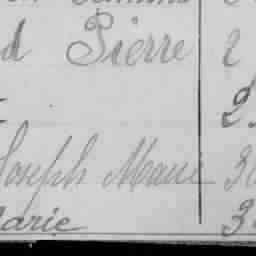 d Pierre 2
2
Joseph Marie 3
Marie 3